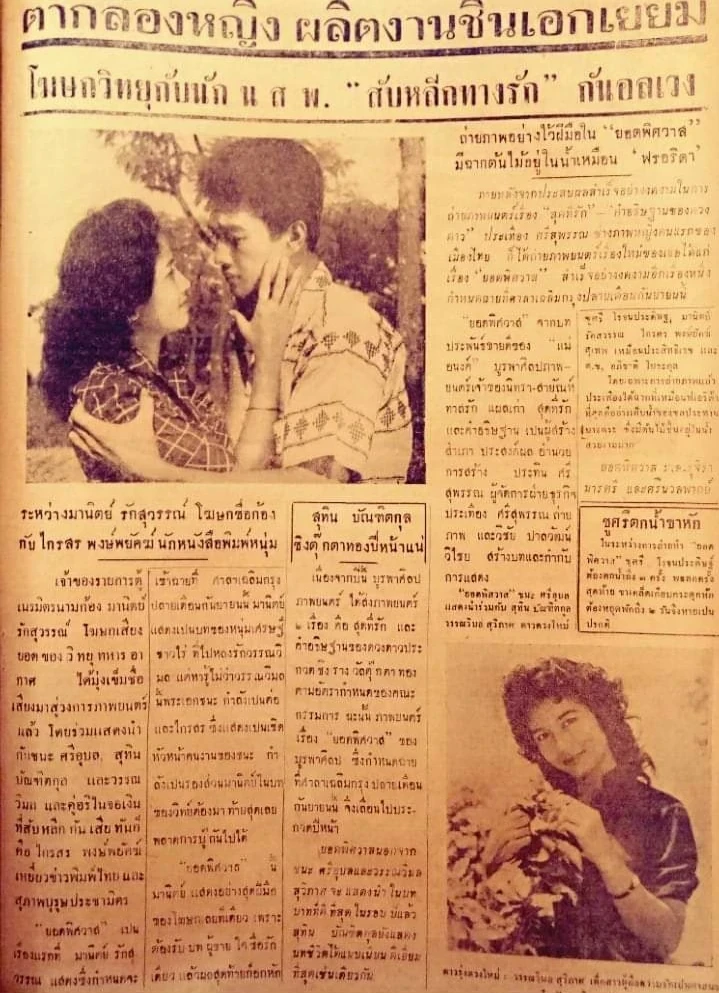 ตากล้องหญิง ผลิตงานชิ้นเอกเยี่ยม
โฆษกวิทยุกับนัก น ส พ. "สับหลีกทางรัก" กันอลเวง
ถ่ายภาพอย่างไว้ฝีมือใน "ยอดพิศวาส"
มีฉากต้นไม้อยู่ในน้ำเหมือน 'ฟรอริดา'
ภายหลังจากประสบผลสำเร็จอย่างงดงามในการ
ถ่ายภาพยนตร์เรื่อง "สุดที่รัก"—"คำอธิษฐานของดวง
ดาว" ประเทือง ศรีสุพรรณ ช่างภาพหญิงคนแรกของ
เมืองไทย ก็ได้ถ่ายภาพยนตร์เรื่องใหม่ของเธอได้แก่
เรื่อง "ยอดพิศวาส" สำเร็จอย่างงดงามอีกเรื่องหนึ่ง
กำหนดฉายที่ศาลาเฉลิมกรุงปลายเดือนกันยายนนี้
"ยอดพิศวาส" จากบท
ประพันธ์ขายดีของ "แม่
อนงค์" บูรพาศิลปภาพ-
ยนตร์เจ้าของนิทรา-สายัณห์
ทาสรัก แผลเก่า สุดที่รัก
และคำอธิษฐาน เป็นผู้สร้าง
สำเภา ประสงค์ผล อำนวย
การสร้าง ประทิน ศรี
สุพรรณ ผู้จัดการฝ่ายธุรกิจ
ประเทือง ศรีสุพรรณ ถ่าย
ภาพ และวิชัย ปาลวัฒน์
วิไชย สร้างบทและกำกับ
การแสดง
"ยอดพิศวาส" ชนะ ศรีอุบล
แสดงนำร่วมกับ สุทิน บัณฑิตกุล
วรรณวิมล สุวิภาศ ดาวดวงใหม่
ชูศรี โรจนประดิษฐ, มานิตย์
รักสุวรรณ ไกรสร พงษ์พยัคฆ์
สุเทพ เหมือนประสิทธิเวช และ
ด.ช. อภิชาติ
โดยเฉพาะการถ่ายภาพแล้ว
ชูศรีตกน้ำขาหัก
ในระหว่างการถ่ายทำ "ยอด
พิศวาส" ชูศรี โรจนประดิษฐ์
ต้องตกน้ำถึง ๓ ครั้ง พอตกครั้ง
สุดท้าย ขาเคล็ดเกือบกระดูกหัก
ต้องหยุดพักถึง ๒ วันจึงหายเป็น
ปรกติ
ระหว่างมานิตย์ รักสุวรรณ์ โฆษกชื่อก้อง
กับ ไกรสร พงษ์พยัฆ นักหนังสือพิมพ์หนุ่ม
เจ้าของรายการตู้
เนรมิตรนามก้อง มานิตย์
รักสุวรรณ์ โฆษกเสียง
ยอด ของ วิทยุ ทหาร อา
กาศ ได้มุ่งเข็มชื่อ
เสียงมาสู่วงการภาพยนตร์
แล้ว โดยร่วมแสดงนำ
กับชนะ ศรีอุบล, สุทิน
บัณฑิตกุล และวรรณ
วิมล และคู่อริในจอเงิน
ที่สับ หลีก กัน เสีย ทันที
คือ ไกรสร พงษ์พยัฆ์
เหยี่ยวข่าวพิมพ์ไทย และ
สุภาพบุรุษประชามิตร
"ยอดพิศวาส" เป็น
เรื่องแรกที่ มานิตย์ รักสุ
วรรณ แสดงซึ่งกำหนดจะ
เข้าฉายที่ ศาลาเฉลิมกรุง
ปลายเดือนกันยายนนี้ มานิตย์
แสดงเป็นบทของหนุ่มเศรษฐี
ชาวไร่ ที่ไปหลงรักวรรณวิ
มล แต่หารู้ไม่ว่าวรรณวิมล
นั้นพระเอกชนะ กำลังเป็นต่อ
และไกรสร ซึ่งแสดงเป็นเชิด
หัวหน้าคนงานของชนะ กำ
ลังเป็นรองส่วนมานิตย์ในบท
ของวิทย์ต้องมา ท้ายสุดเลย
พลาดการปู้ยี่ปู้ยำไปได้
"ยอดพิศวาส" นี้
มานิตย์ แสดงอย่างสุดฝีมือ
ของโฆษกเลยทีเดียว เพราะ
ต้องรับ บท ผู้ชาย ใจ ซื่อรัก
เดียว แล้วผลสุดท้ายก็อกหัก
สุทิน บัณฑิตกุล
ชิงตุ๊กตาทองปีหน้าแน่
เนื่องจากปีนี้ บูรพาศิลป
ภาพยนตร์ ได้ส่งภาพยนตร์
๒ เรื่อง คือ สุดที่รัก และ
คำอธิษฐานของดวงดาวประ
กวด ชิง ราง วัลตุ๊กตา ทอง
ตามอัตรากำหนดของคณะ
กรรมการ ฉะนั้น ภาพยนตร์
เรื่อง "ยอดพิศวาส" ของ
บูรพาศิลป ซึ่งกำหนดฉาย
ที่ศาลาเฉลิมกรุง ปลายเดือน
กันยายนนี้ จึงเลื่อนไปประ-
กวดปีหน้า
ยอดพิศวาสนอกจาก
ชนะ ศรีอุบลและวรรณวิมล
สุวิภาศ จะ แสดงนำ ในบท
บาทที่ดี ที่สุด ในรอบ ปีแล้ว
สุทิน บัณฑิตกุลยังแสดง
บทชีวิตได้แนบเนียน ดีเยี่ยม
ที่สุดเช่นเดียวกัน
ดาวรุ่งดวงใหม่ : วรรณวิมล สุวิภาศ